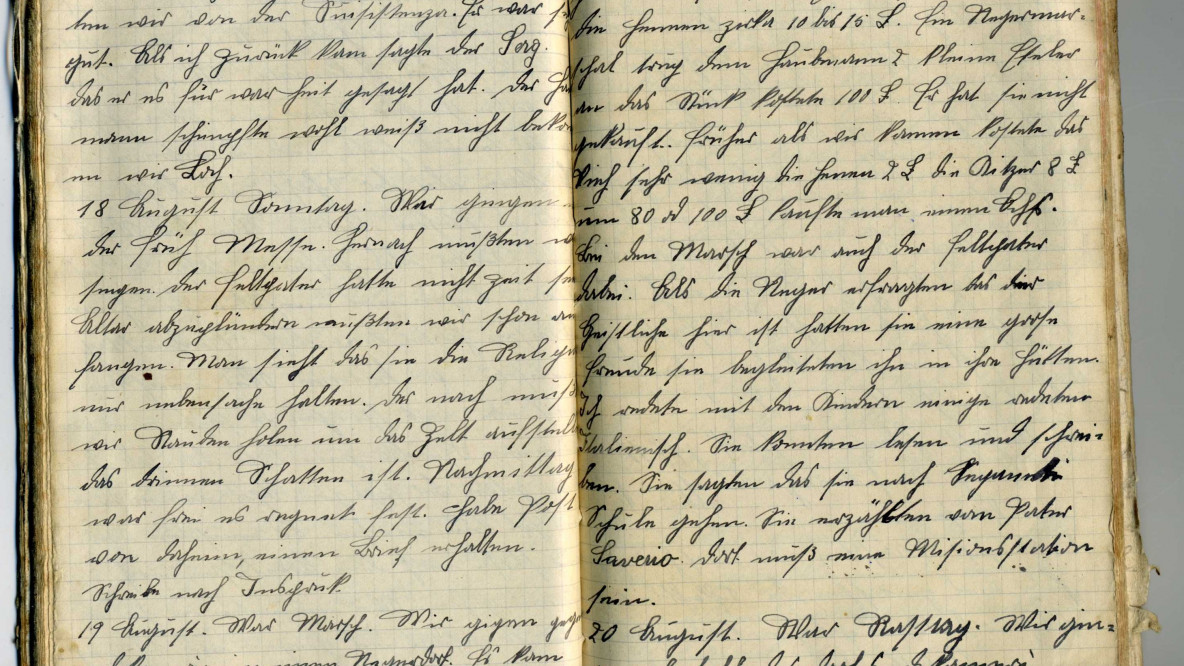 ten wir von der Susistenza. Er war se
gut. Als ich zurück kam sagte der Serg.
das er es für war heit gesagt hat. Der Ha
mann schimpfte wohl weiß nicht beko
en wir Loch.
18 August Sonntag. Wir gingen
der früh Messe. Hernach mußten w
singen. Der Feltpater hatte nicht zeit se
Altar abzuplündern mußten wir schon an
fangen. Man sieht das sie die Religio
nur nebensache halten. Der nach muß
wir Stauden holen um das Zelt aufstel
das drinnen Schatten ist. Nachmittag
war frei es regnet fest. Habe Post
von daheim, einen Brief erhalten.
Schreibe nach Inspruk
19 August. War Marsch. Wir gigen geg
einen Negerdorf. Es kam
die Hennen zirka 10 bis 15 L. Ein Negermar=
schal trug dem Haubmann 2 kleine Eseler
an das Stück kostete 100 L. Er hat sie nicht
gekauft. Früher als wir kamen kostete das
Vieh sehr wenig die Henen 2 L die Kitzer 8 L
um 80 od 100 L kaufte man einen Ochs.
Bei den Marsch war auch der Feltpater
dabei. Als die Neger erfragten das der
Geistliche hier ist hatten sie eine grose
Freude sie begleiteten ihn in ihre Hütten.
Ich redete mit den Kindern einige redeten
italienisch. Sie konnten lesen und schrei=
ben. Sie sagten das sie nach
Schule gehen. Sie erzählten von Pater
Saverio. dort muß eine Misionsstation
sein.
20 August. War Rasttag. Wir gin=